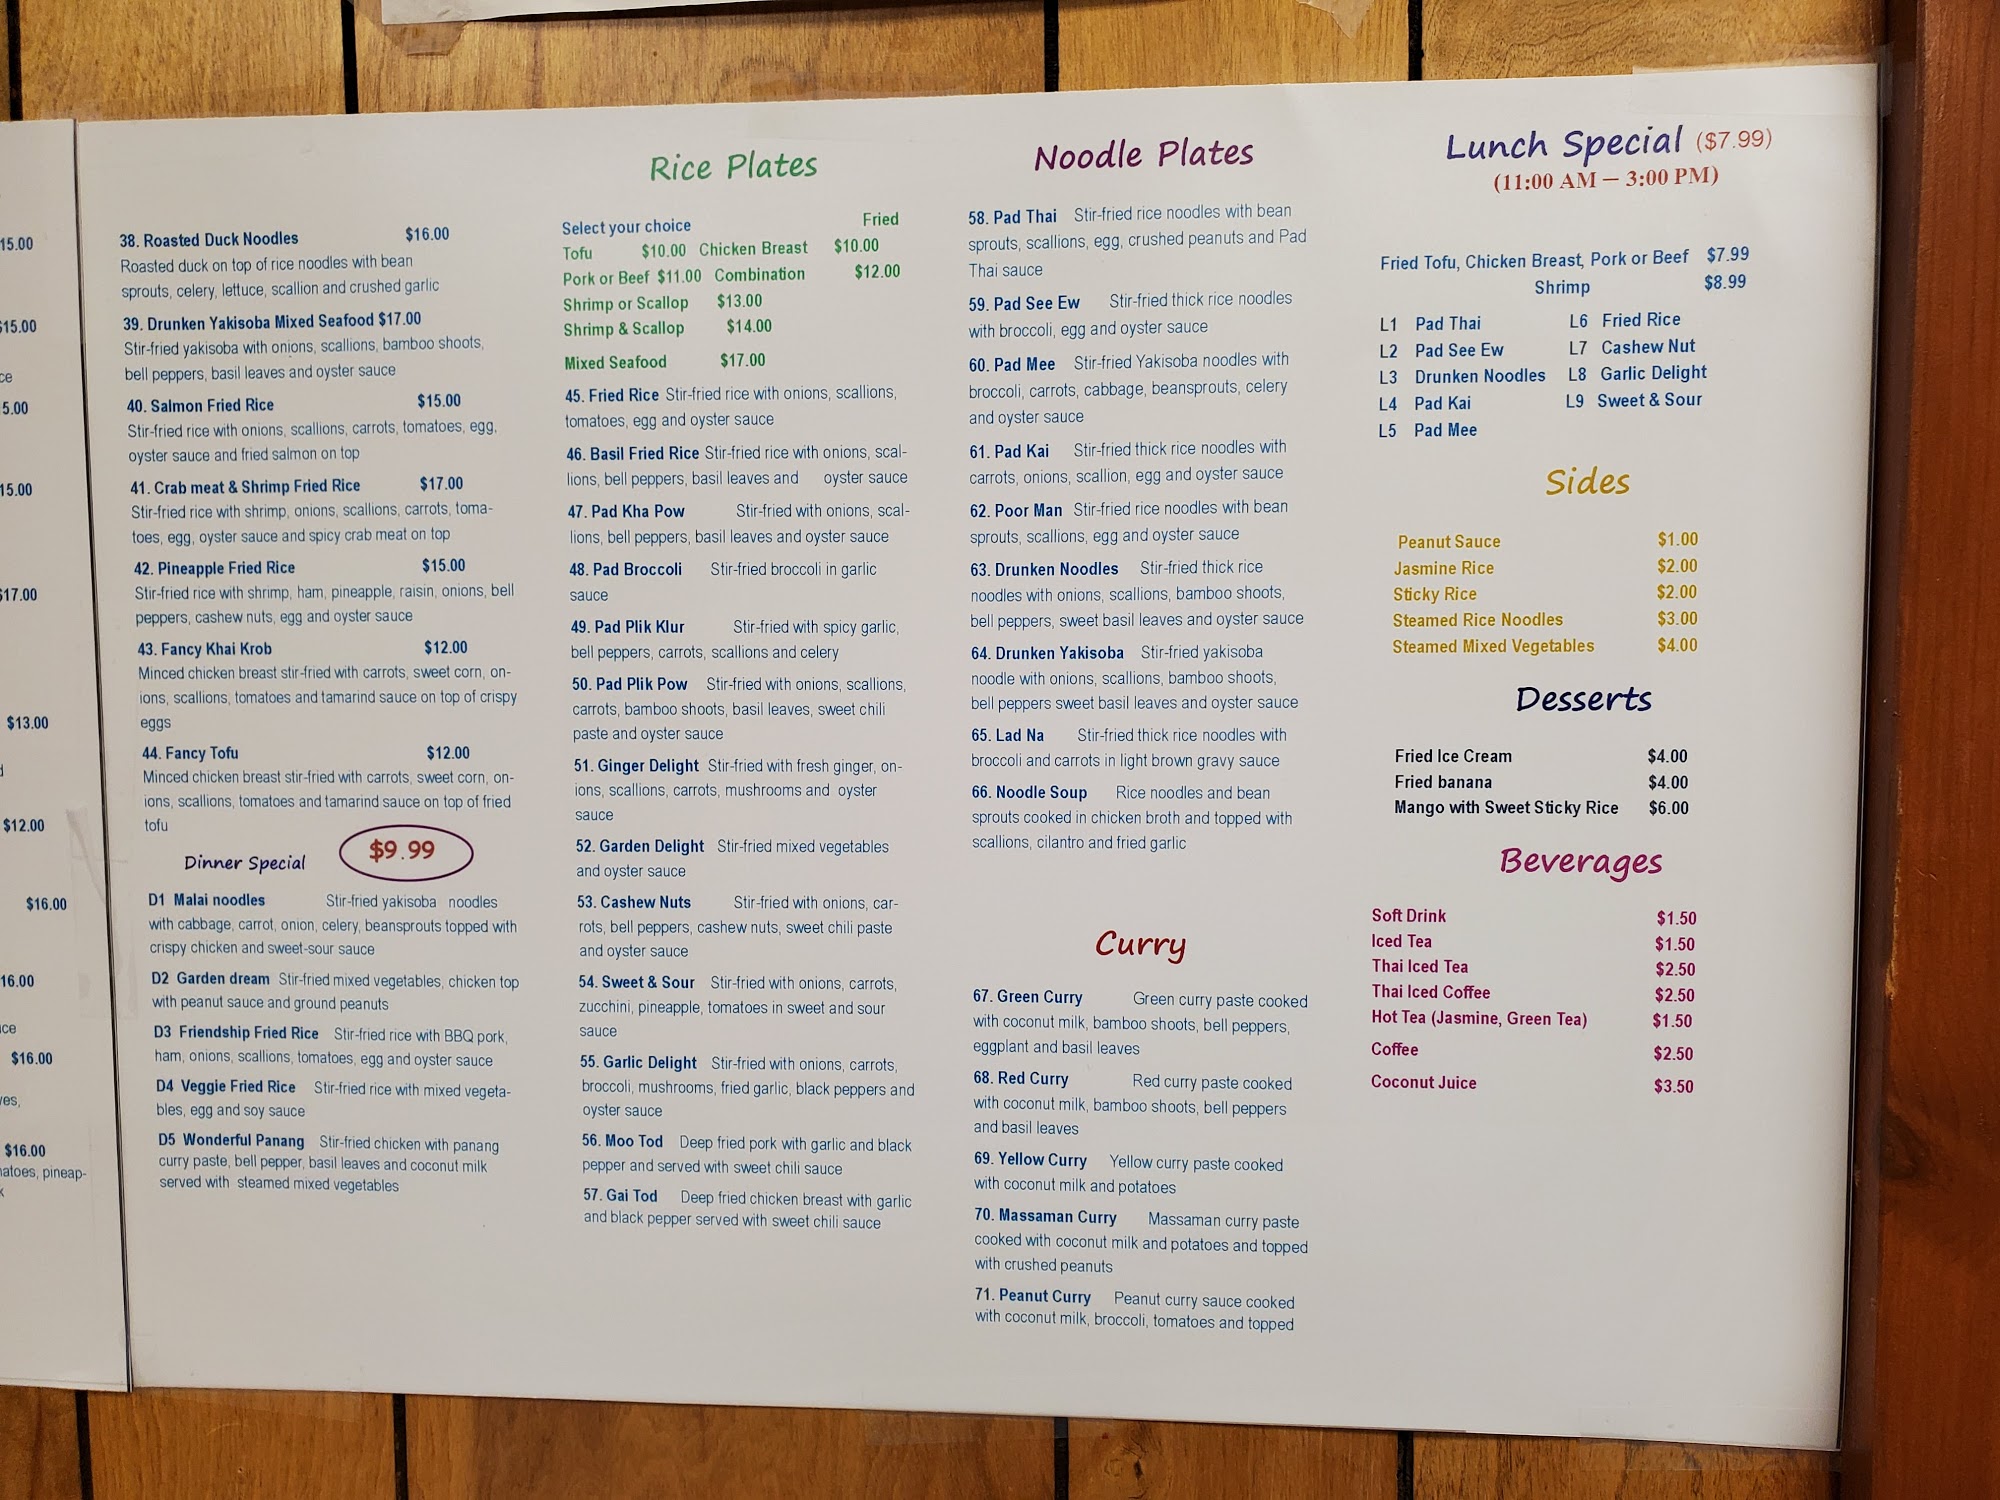 15.00
$15.00
ce
5.00
15.00
$17.00
$13.00
$12.00
$16.00
16.00
ce
$16.00
ves,
$16.00
atoes, pineap-
38. Roasted Duck Noodles $16.00
Roasted duck on top of rice noodles with bean
sprouts, celery, lettuce, scallion and crushed garlic
39. Drunken Yakisoba Mixed Seafood $17.00
Stir-fried yakisoba with onions, scallions, bamboo shoots,
bell peppers, basil leaves and oyster sauce
40. Salmon Fried Rice $15.00
Stir-fried rice with onions, scallions, carrots, tomatoes, egg,
oyster sauce and fried salmon on top
41. Crab meat & Shrimp Fried Rice $17.00
Stir-fried rice with shrimp, onions, scallions, carrots, toma-
toes, egg, oyster sauce and spicy crab meat on top
42. Pineapple Fried Rice $15.00
Stir-fried rice with shrimp, ham, pineapple, raisin, onions, bell
peppers, cashew nuts, egg and oyster sauce
43. Fancy Khai Krob $12.00
Minced chicken breast stir-fried with carrots, sweet corn, on-
ions, scallions, tomatoes and tamarind sauce on top of crispy
eggs
44. Fancy Tofu $12.00
Minced chicken breast stir-fried with carrots, sweet corn, on-
ions, scallions, tomatoes and tamarind sauce on top of fried
tofu
Dinner Special $9.99
D1 Malai noodles Stir-fried yakisoba noodles
with cabbage, carrot, onion, celery, beansprouts topped with
crispy chicken and sweet-sour sauce
D2 Garden dream Stir-fried mixed vegetables, chicken top
with peanut sauce and ground peanuts
D3 Friendship Fried Rice Stir-fried rice with BBQ pork,
ham, onions, scallions, tomatoes, egg and oyster sauce
D4 Veggie Fried Rice Stir-fried rice with mixed vegeta-
bles, egg and soy sauce
D5 Wonderful Panang Stir-fried chicken with panang
curry paste, bell pepper, basil leaves and coconut milk
served with steamed mixed vegetables
Rice Plates
Select your choice Fried
Tofu $10.00 Chicken Breast $10.00
Pork or Beef $11.00 Combination $12.00
Shrimp or Scallop $13.00
Shrimp & Scallop $14.00
Mixed Seafood $17.00
45. Fried Rice Stir-fried rice with onions, scallions,
tomatoes, egg and oyster sauce
46. Basil Fried Rice Stir-fried rice with onions, scal-
lions, bell peppers, basil leaves and oyster sauce
47. Pad Kha Pow Stir-fried with onions, scal-
lions, bell peppers, basil leaves and oyster sauce
48. Pad Broccoli Stir-fried broccoli in garlic
sauce
49. Pad Plik Klur Stir-fried with spicy garlic,
bell peppers, carrots, scallions and celery
50. Pad Plik Pow Stir-fried with onions, scallions,
carrots, bamboo shoots, basil leaves, sweet chili
paste and oyster sauce
51. Ginger Delight Stir-fried with fresh ginger, on-
ions, scallions, carrots, mushrooms and oyster
sauce
52. Garden Delight Stir-fried mixed vegetables
and oyster sauce
53. Cashew Nuts Stir-fried with onions, car-
rots, bell peppers, cashew nuts, sweet chili paste
and oyster sauce
54. Sweet & Sour Stir-fried with onions, carrots,
zucchini, pineapple, tomatoes in sweet and sour
sauce
55. Garlic Delight Stir-fried with onions, carrots,
broccoli, mushrooms, fried garlic, black peppers and
oyster sauce
56. Moo Tod Deep fried pork with garlic and black
pepper and served with sweet chili sauce
57. Gai Tod Deep fried chicken breast with garlic
and black pepper served with sweet chili sauce
Noodle Plates
58. Pad Thai Stir-fried rice noodles with bean
sprouts, scallions, egg, crushed peanuts and Pad
Thai sauce
59. Pad See Ew Stir-fried thick rice noodles
with broccoli, egg and oyster sauce
60. Pad Mee Stir-fried Yakisoba noodles with
broccoli, carrots, cabbage, beansprouts, celery
and oyster sauce
61. Pad Kai Stir-fried thick rice noodles with
carrots, onions, scallion, egg and oyster sauce
62. Poor Man Stir-fried rice noodles with bean
sprouts, scallions, egg and oyster sauce
63. Drunken Noodles Stir-fried thick rice
noodles with onions, scallions, bamboo shoots,
bell peppers, sweet basil leaves and oyster sauce
64. Drunken Yakisoba Stir-fried yakisoba
noodle with onions, scallions, bamboo shoots,
bell peppers sweet basil leaves and oyster sauce
65. Lad Na Stir-fried thick rice noodles with
broccoli and carrots in light brown gravy sauce
66. Noodle Soup Rice noodles and bean
sprouts cooked in chicken broth and topped with
scallions, cilantro and fried garlic
Curry
67. Green Curry Green curry paste cooked
with coconut milk, bamboo shoots, bell peppers,
eggplant and basil leaves
68. Red Curry Red curry paste cooked
with coconut milk, bamboo shoots, bell peppers
and basil leaves
69. Yellow Curry Yellow curry paste cooked
with coconut milk and potatoes
70. Massaman Curry Massaman curry paste
cooked with coconut milk and potatoes and topped
with crushed peanuts
71. Peanut Curry Peanut curry sauce cooked
with coconut milk, broccoli, tomatoes and topped
Lunch Special ($7.99)
(11:00 AM — 3:00 PM)
Fried Tofu, Chicken Breast, Pork or Beef $7.99
Shrimp $8.99
L1 Pad Thai L6 Fried Rice
L2 Pad See Ew L7 Cashew Nut
L3 Drunken Noodles L8 Garlic Delight
L4 Pad Kai L9 Sweet & Sour
L5 Pad Mee
Sides
Peanut Sauce $1.00
Jasmine Rice $2.00
Sticky Rice $2.00
Steamed Rice Noodles $3.00
Steamed Mixed Vegetables $4.00
Desserts
Fried Ice Cream $4.00
Fried banana $4.00
Mango with Sweet Sticky Rice $6.00
Beverages
Soft Drink $1.50
Iced Tea $1.50
Thai Iced Tea $2.50
Thai Iced Coffee $2.50
Hot Tea (Jasmine, Green Tea) $1.50
Coffee $2.50
Coconut Juice $3.50